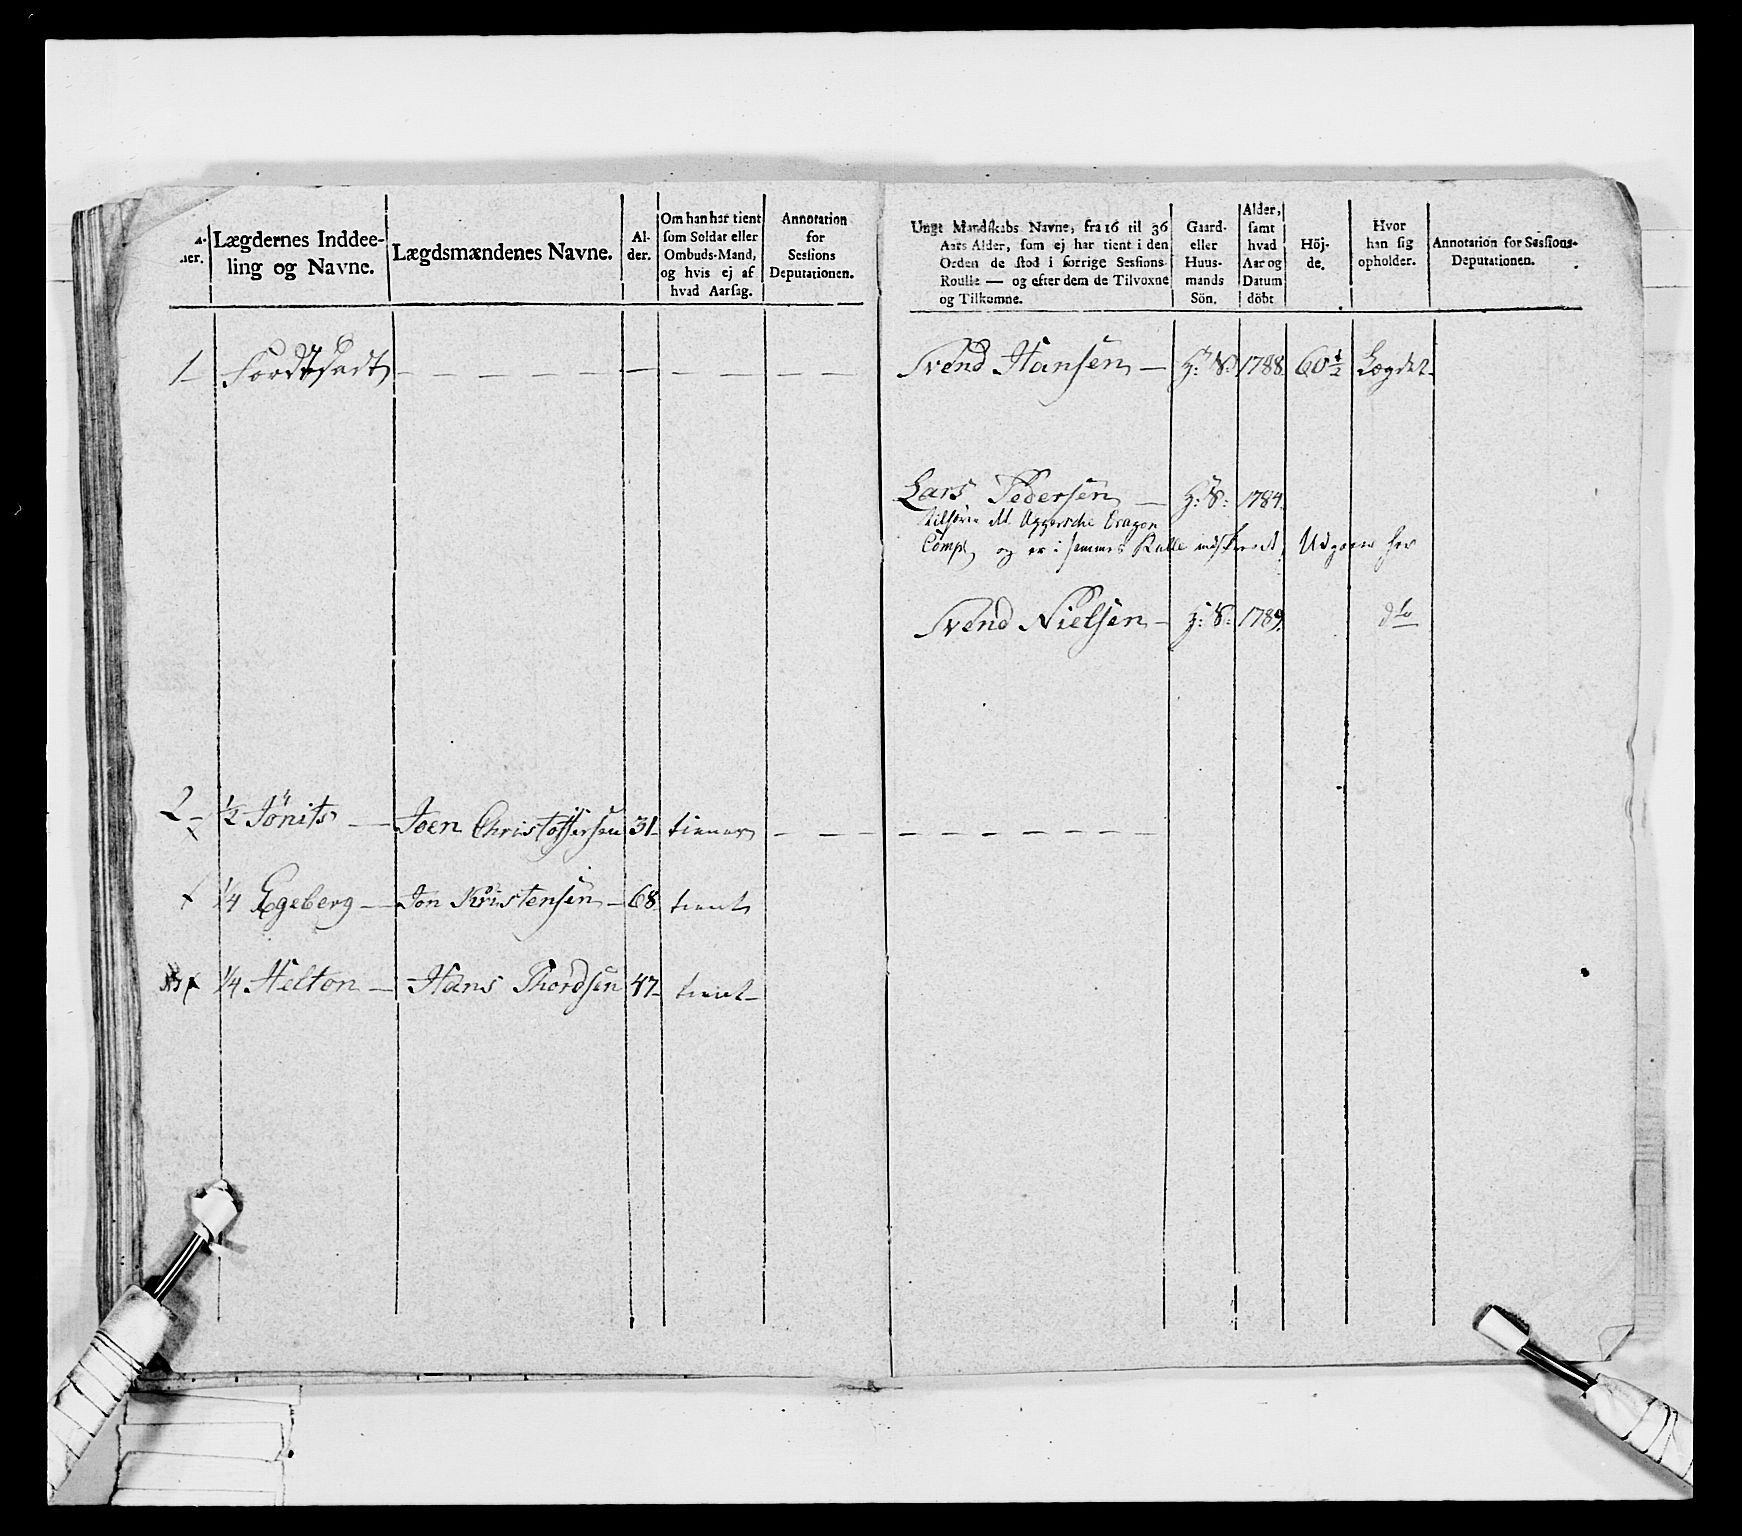 Lægdernes Inddee-
ling og Navne.
Lægdsmændenes Navne.
Al-
der.
Om han har tient
som Soldat eller
Ombuds-Mand,
og hvis ej af
hvad Aarsag.
Annotation
for
Sessions
Deputationen.
Ungt Mandskabs Navne, fra 16 til 36
Aars Alder, som ej har tient i den
Orden de stod i forrige Sessions-
Roulle — og efter dem de Tilvoxne
og Tilkomne.
Gaard-
eller
Huus-
mands
Sön.
Alder,
samt
hvad
Aar og
Datum
döbt
Höj-
de.
Hvor
han sig
opholder.
Annotation for Sessions-
Deputationen.
1 Fordtsadt — — — — — — — Svend Hansen — 1788 60½ Lægdet
Lars Pedersen — 1784.
Dragon
Comp. og er i sammes Rulle indført, Udgaaer her
Svend Nielsen — 1789. dto
2 ½ Tönits — Joen Christoffersen 31 tiener — — — — — —
¼ Egeberg — Jon Kristensen — 68 tient
¼ Helton — Hans Thordsen 47 tient